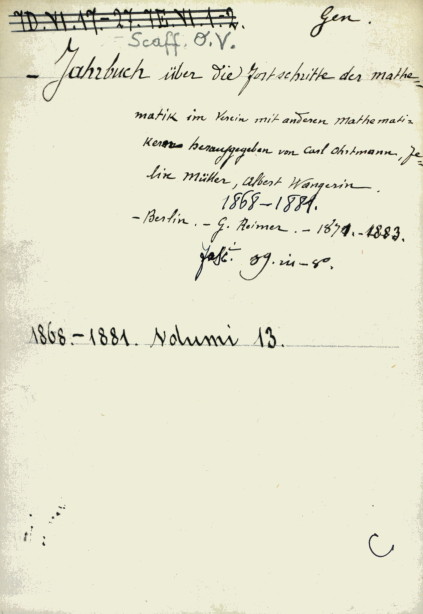 7D.VI.17.-27. 7E.VI.1.-2. Gen.
Scaff. O.V.
- Jahrbuch über die Fortschritte der mathe=
matik im Verein mit anderen Mathemati=
kern herausgegeben von Carl Ohrtmann, Fe=
lix Müller, Albert Wangerin.
1868-1881.
- Berlin. - G. Reimer. - 1871.-1883.
in-8º.
1868.-1881. Volumi 13.
C